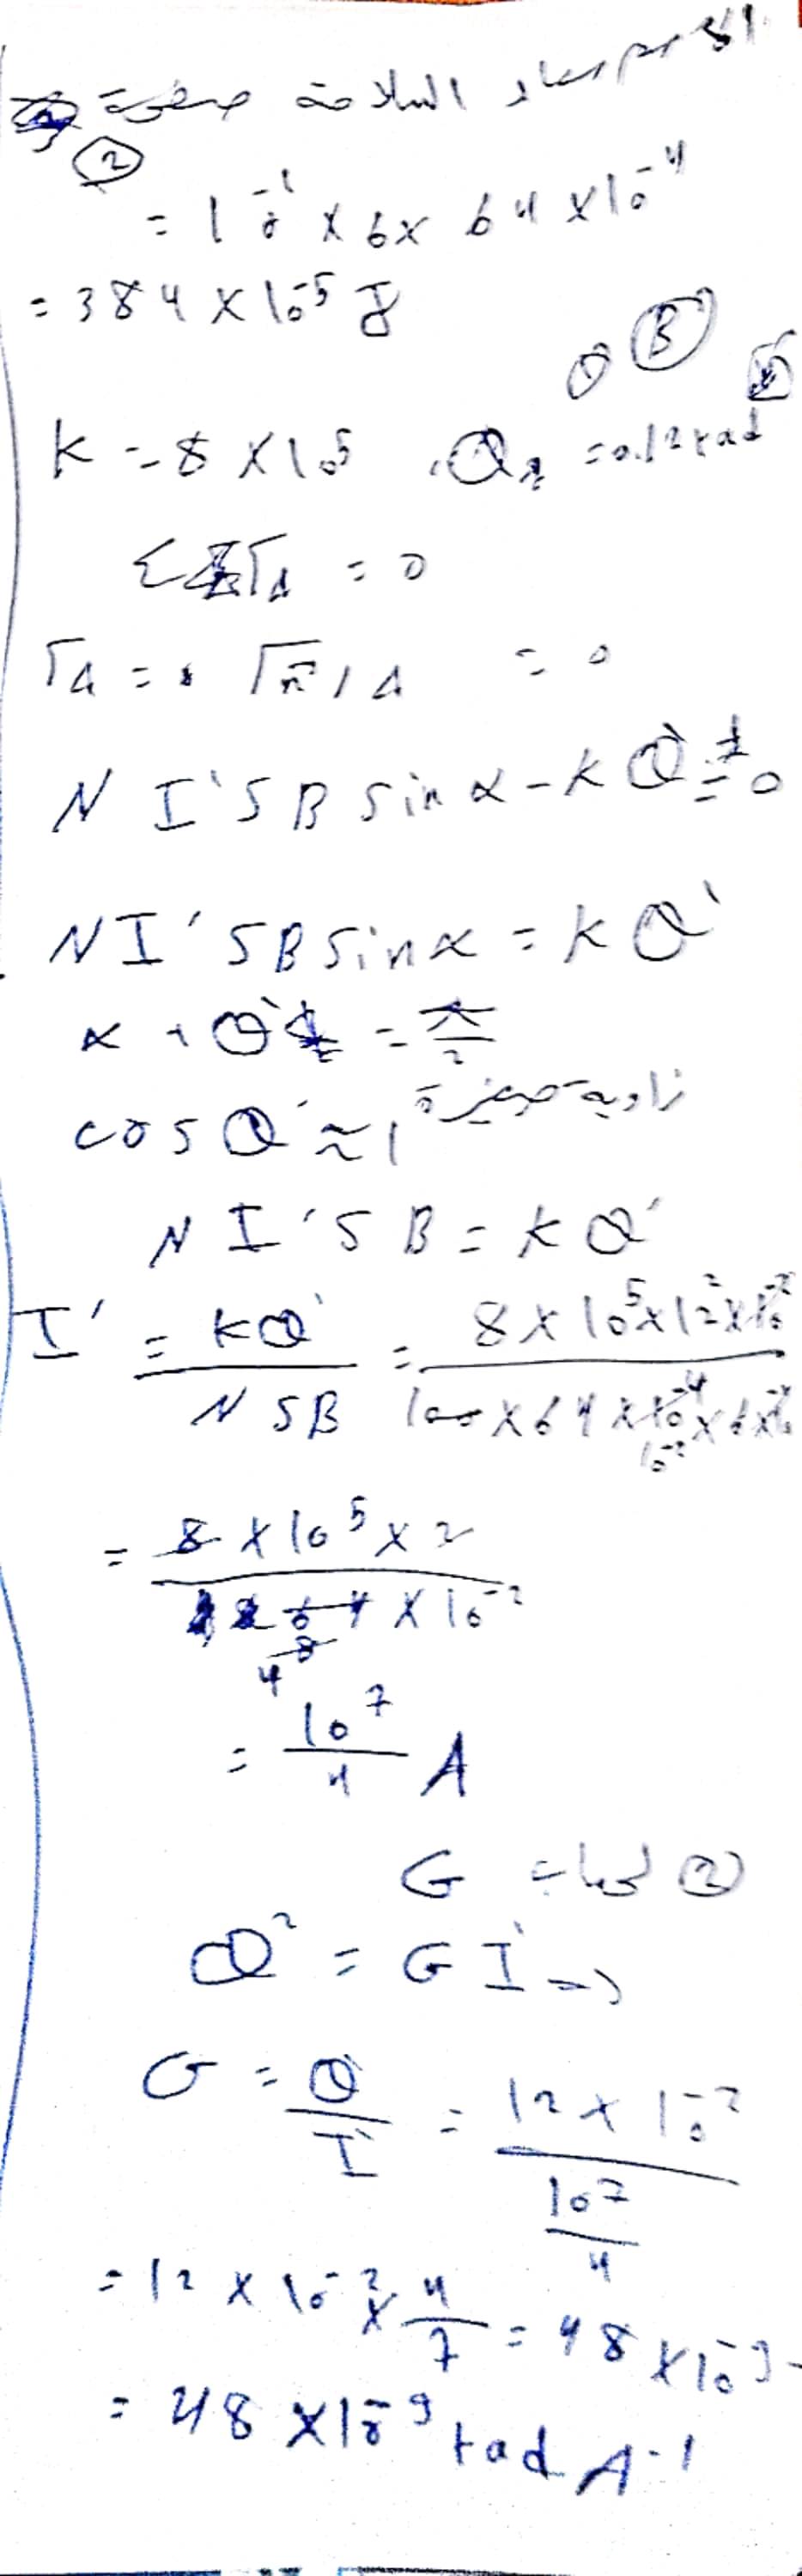 ②
= 10⁻¹ × 6 × 64 × 10⁻⁴
= 384 × 10⁻⁵ J
B
K = 8 × 10⁵ , θ = 0.12 rad
Σ Γ_Δ = 0
= 0
N I' S B sin α - K θ' = 0
N I' S B sin α = K θ'
α + θ' = π/2
cos θ' ≈ 1 زاوية صغيرة
N I' S B = K θ'
I' = Kθ' / NSB = 8 × 10⁵ × 12 × 10⁻² / 100 × 64 × 10⁻⁴ × 6 × 10⁻²
= 8 × 10⁵ × 2 / 64 × 10⁻²
= 10⁷ / 4 A
② لحساب G
θ' = G I' ⇒
G = θ' / I' = 12 × 10⁻² / 10⁷/4
= 12 × 10⁻² × 4/7 = 48 × 10⁻⁹
= 48 × 10⁻⁹ rad A⁻¹